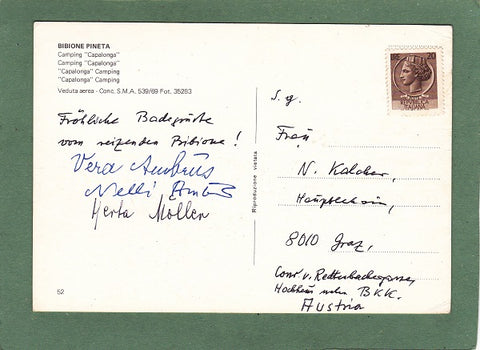 BIBIONE PINETA
Camping "Capalonga"
Camping "Capalonga"
"Capalonga" Camping
"Capalonga" Camping
Veduta aerea - Conc. S.M.A. 539/69 Fot. 35283
Fröhliche Badegrüße
vom reizenden Bibione!
Vera
Nelli
Herta Moller
52
Riproduzione vietata
20
S. g.
Frau
N. Kalcher,
8010 Graz,
Conr. v.
BKK.
Austria